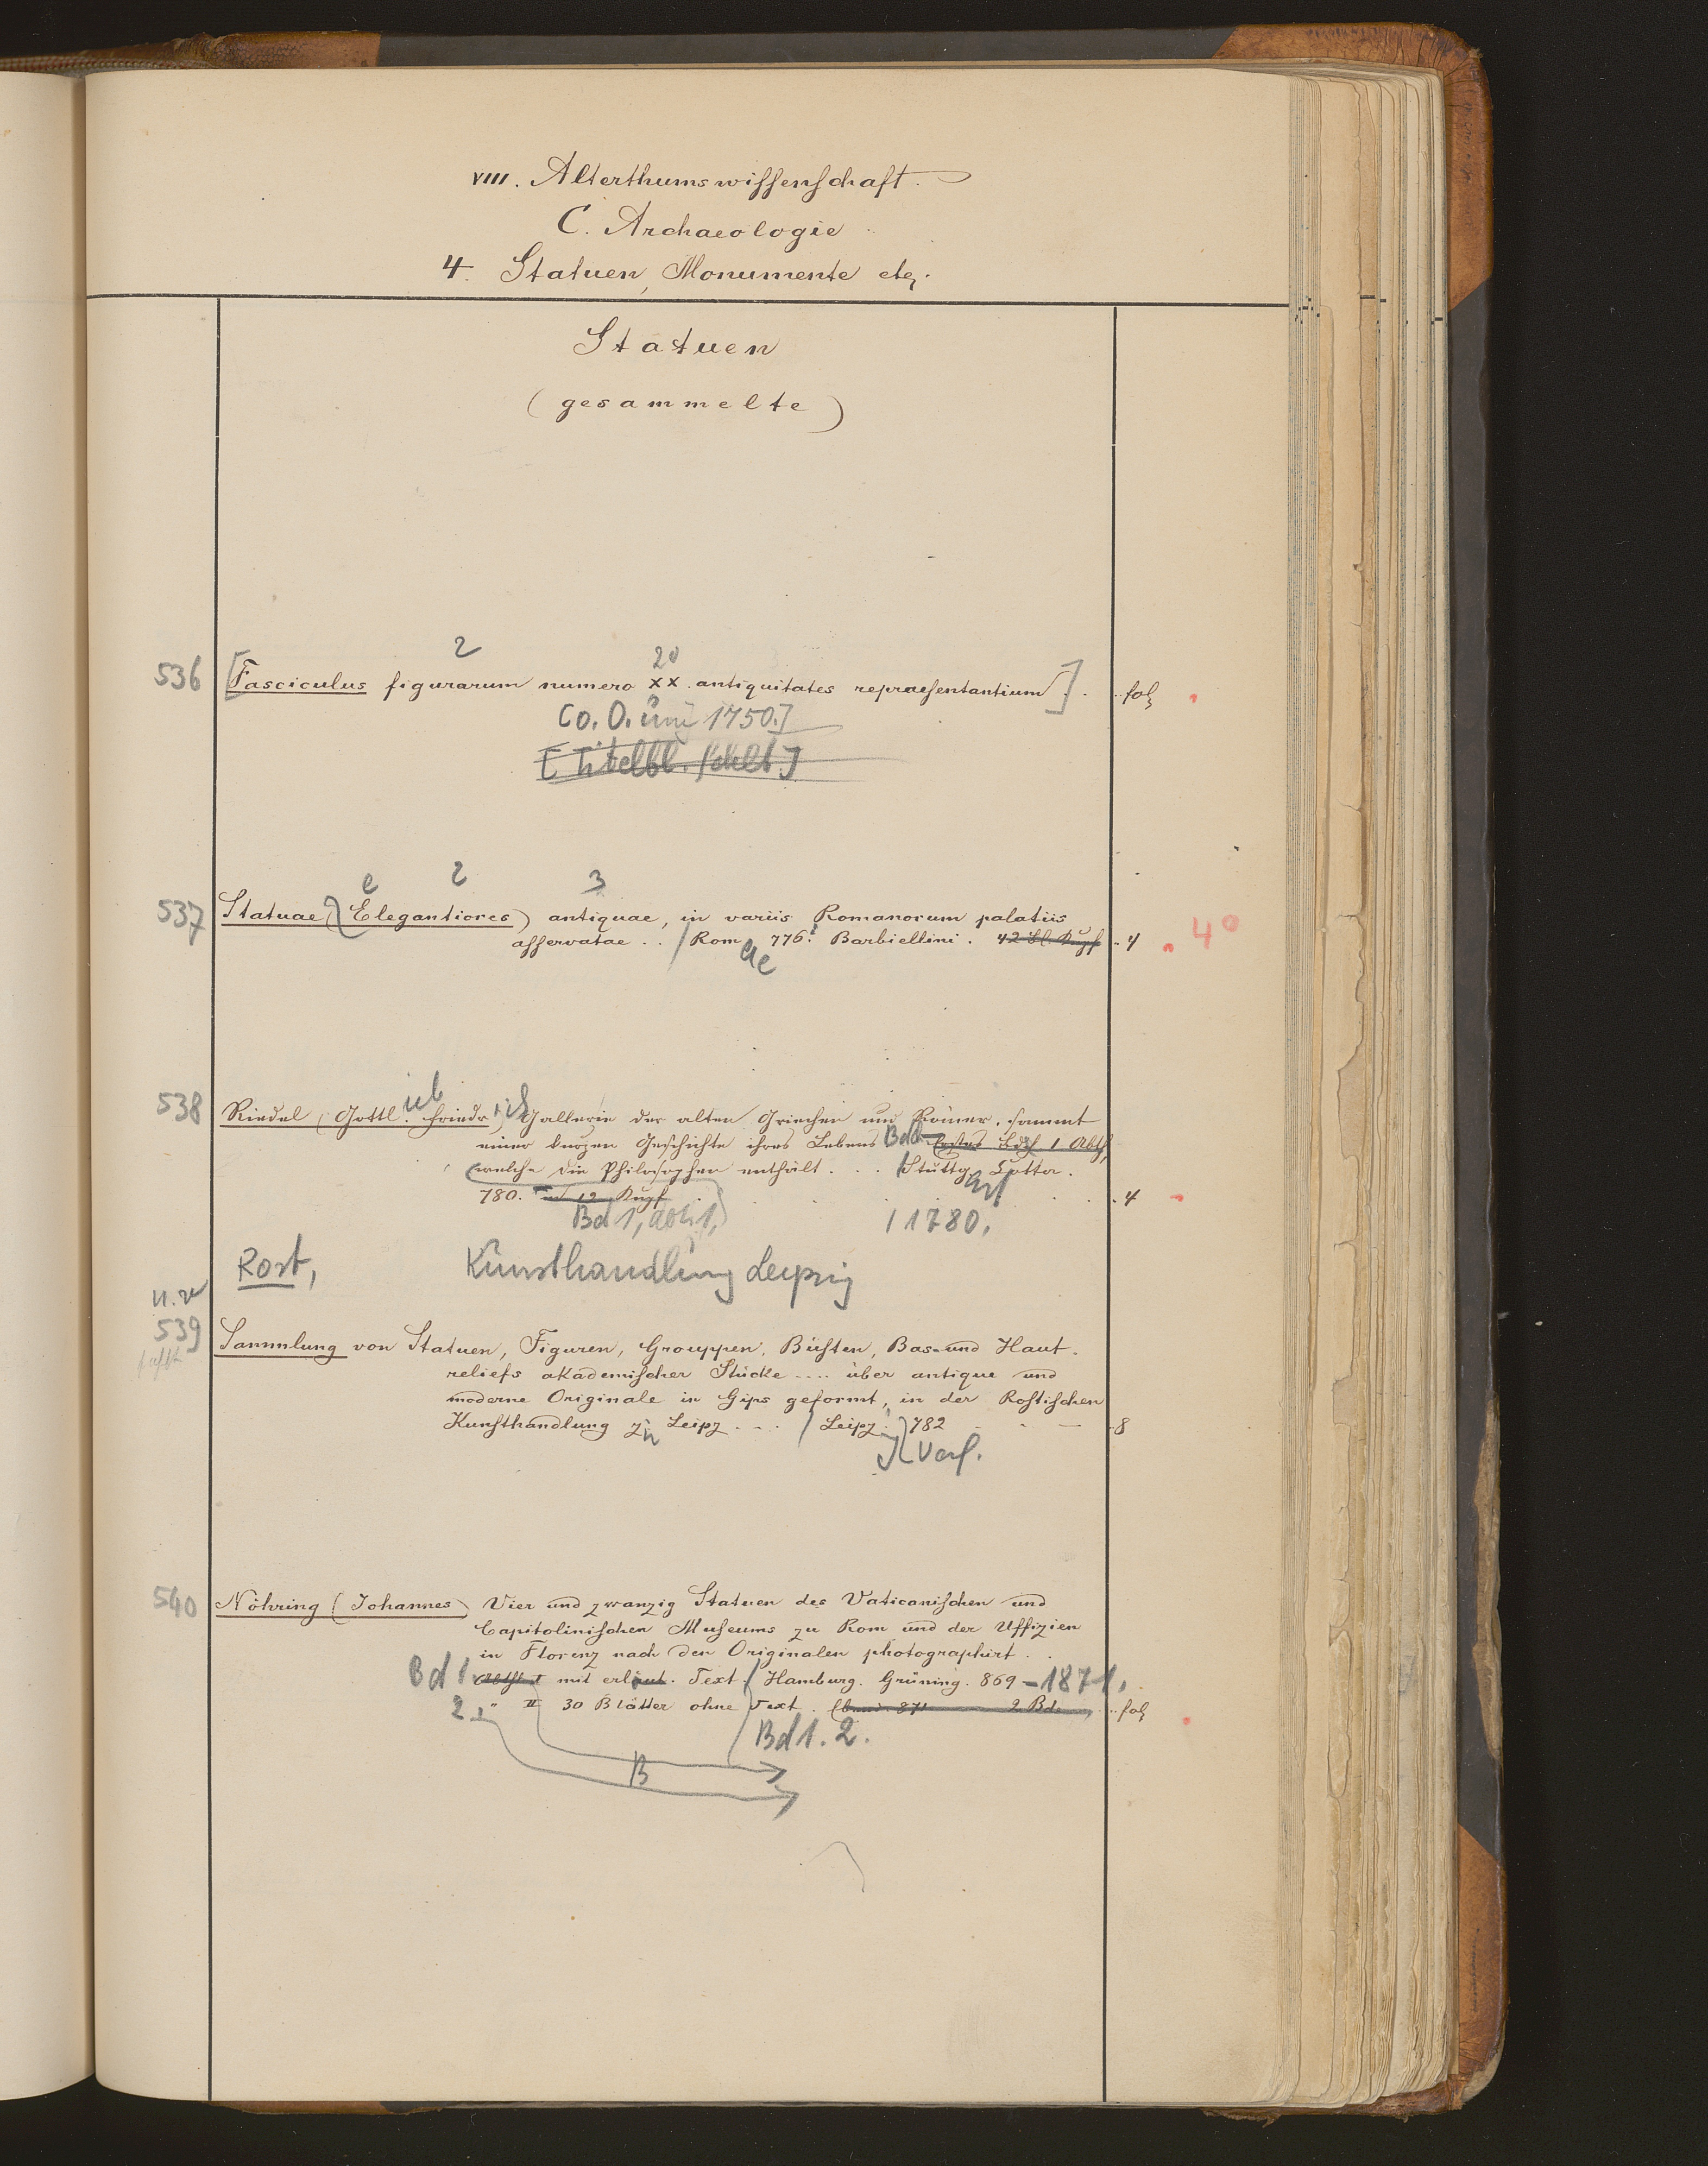 VIII. Alterthumswissenschaft.
C. Archaeologie
4. Statuen, Monumente etc.
Statuen
(gesammelte)
2
20
536 [Fasciculus figurarum numero XX. antiquitates repraesentantium]. . fol
[o. O. um 1750.]
[Titelbl. fehlt.]
e 2 3
537 Statuae (Elegantiores) antiquae, in variis Romanorum palatiis
asservatae . . / Romae 776. Barbiellini. 42 Bl. Kupf . 4 . 4°
538 Riedel (Gottlieb Friedrich) Gallerie der alten Griechen und Römer, sammt
einer kurzen Geschichte ihres Lebens Bd Erstes Bdch 1 Abth,
welche die Philosophen enthält . . . / Stuttgart Cotta.
780. mit 12 Kupf . . . . 4
Bd 1, Abth 1, / 1780.
Rost, Kunsthandlung Leipzig
539 Sammlung von Statuen, Figuren, Grouppen, Büsten, Bas- und Haut-
reliefs akademischer Stücke .... über antique und
moderne Originale in Gips geformt, in der Rostischen
Kunsthandlung zu Leipz . . . / Leipzig 782 . 8
Verf.
540 Nöhring (Johannes) Vier und zwanzig Statuen des Vaticanischen und
Capitolinischen Museums zu Rom und der Uffizien
in Florenz nach den Originalen photographirt . .
Bd 1. Abth I mit erläut. Text. / Hamburg. Grüning. 869 – 1871.
2. " II 30 Blätter ohne Text. 871 2 Bde . . fol
Bd 1. 2.
B